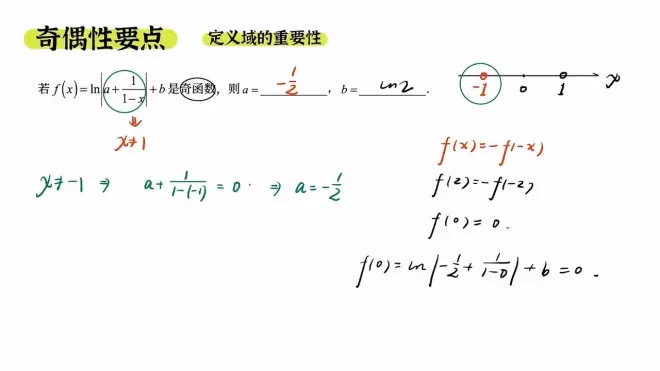 奇偶性要点 定义域的重要性
若 f(x)=ln|a+1/(1-x)|+b 是奇函数，则 a=-1/2，b=ln2.
-1 0 1 x
x≠1
f(x)=-f(-x)
x≠-1 ⇒ a+1/(1-(-1))=0. ⇒ a=-1/2
f(2)=-f(-2)
f(0)=0.
f(0)=ln|-1/2+1/(1-0)|+b=0.